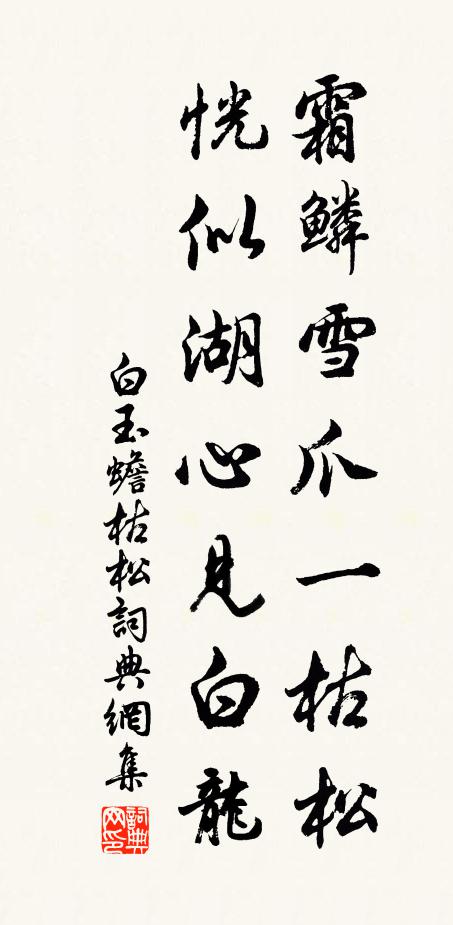 霜鱗雪爪一枯松
恍似湖心見白龍
白玉蟾枯松詞典網集
詞典网印